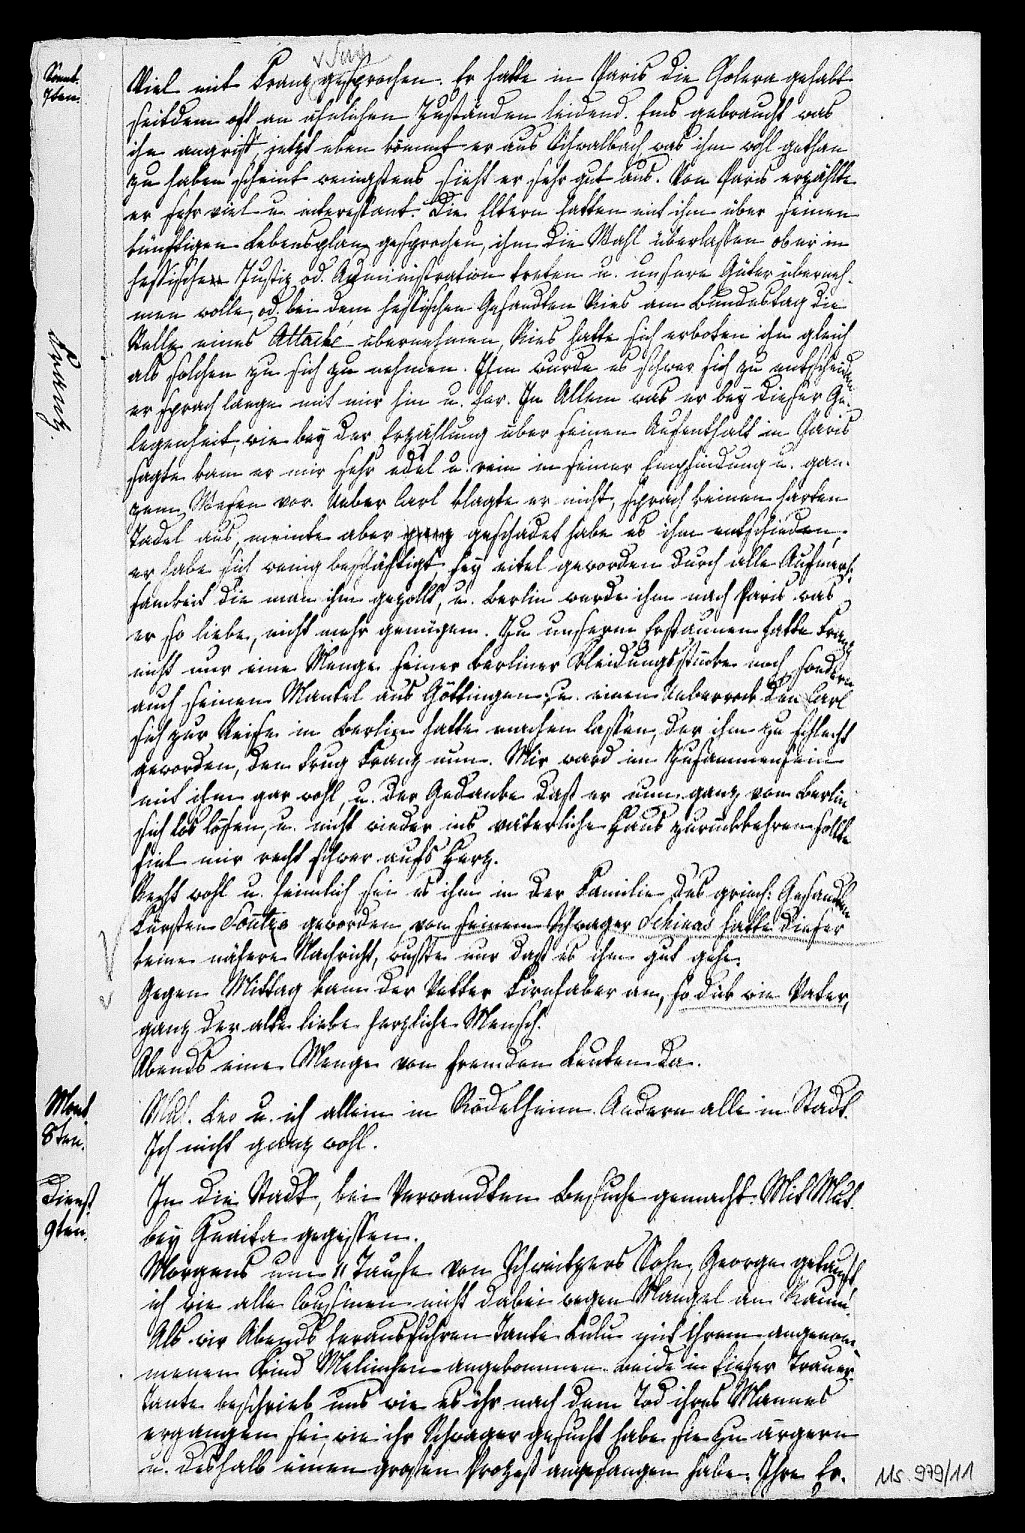 Sonnt.
7ten.
Viel mit Franz gesprochen. Er hatte in Paris die Cholera gehabt
seitdem oft an ähnlichen Zuständen leidend. Ems gebraucht was
ihn angriff, jetzt eben kömmt er aus Schwalbach was ihm wohl gethan
zu haben scheint wenigstens sieht er sehr gut aus. Von Paris erzählte
er sehr viel u. interessant. Die Eltern hatten mit ihm über seinen
künftigen Lebensplan gesprochen, ihm die Wahl überlassen ob er in
hessische Justiz od. Administration treten u. unsere Güter überneh-
men wolle, od. bei dem hessischen Gesandten Ries am Bundestag die
Stelle eines Attaché übernehmen, Ries hatte sich erboten ihn gleich
als solchen zu sich zu nehmen. Ihm wurde es schwer sich zu entscheiden
Franz.
er sprach lange mit mir hin u. her. In Allem was er bey dieser Ge-
legenheit, wie bey der Erzählung über seinen Aufenthalt in Paris
sagte kam er mir sehr edel u. rein in seiner Empfindung u. gan-
zem Wesen vor. Ueber Carl klagte er nicht, sprach keinen harten
Tadel aus, meinte aber geschadet habe es ihm entschieden,
er habe sich wenig beschäftigt sey eitel geworden durch alle Aufmerk-
samkeit die man ihm gezollt, u. Berlin werde ihm nach Paris was
er so liebe, nicht mehr genügen. Zu unserm Erstaunen hatte Franz
nicht nur eine Menge seiner berliner Kleidungsstücke noch, sondern
auch seinen Mantel aus Göttingen, u. einen Ueberrock den Carl
sich zur Reise in Berlin hatte machen lassen, der ihm zu schlecht
geworden, den trug Franz nun. Mir ward im Zusammensein
mit ihm gar wohl, u. der Gedanke daß er nun ganz von Berlin
sich los lösen, u. nicht wieder ins väterliche Haus zurückkehren sollte
fiel mir recht schwer aufs Herz.
Recht wohl u. heimlich sei es ihm in der Familie des griech: Gesandten
Fürsten Soutzo geworden, von seinem Schwager Schinas hatte dieser
keine nähere Nachricht, wußte nur daß es ihm gut gehe.
Gegen Mittag kam der Vetter Firnhaber an, so dick wie Vater,
ganz der alte liebe herzliche Mensch.
Abends eine Menge von fremden Leuten da.
Mont.
8ten.
Mut. Leo u. ich allein in Rödelheim. Andern alle in Stadt.
Ich nicht ganz wohl.
Dienst.
9ten.
In die Stadt, bei Verwandten Besuche gemacht. Mit Mut.
bey Guaita gegessen.
Morgens um 11 Taufe von Schweitzers Sohn, George getauft,
ich wie alle Cousinen nicht dabei wegen Mangel an Raum.
Als wir Abends herausfuhren Tante Lulu mit ihrem angenom-
menen Kind Melinchen angekommen beide in tiefer Trauer.
Tante beschrieb uns wie es ihr nach dem Tod ihres Mannes
ergangen sei, wie ihr Schwager gesucht habe sie zu ärgern
u. deshalb einen großen Prozeß angefangen habe. Ihre Er-
Ms 979/11